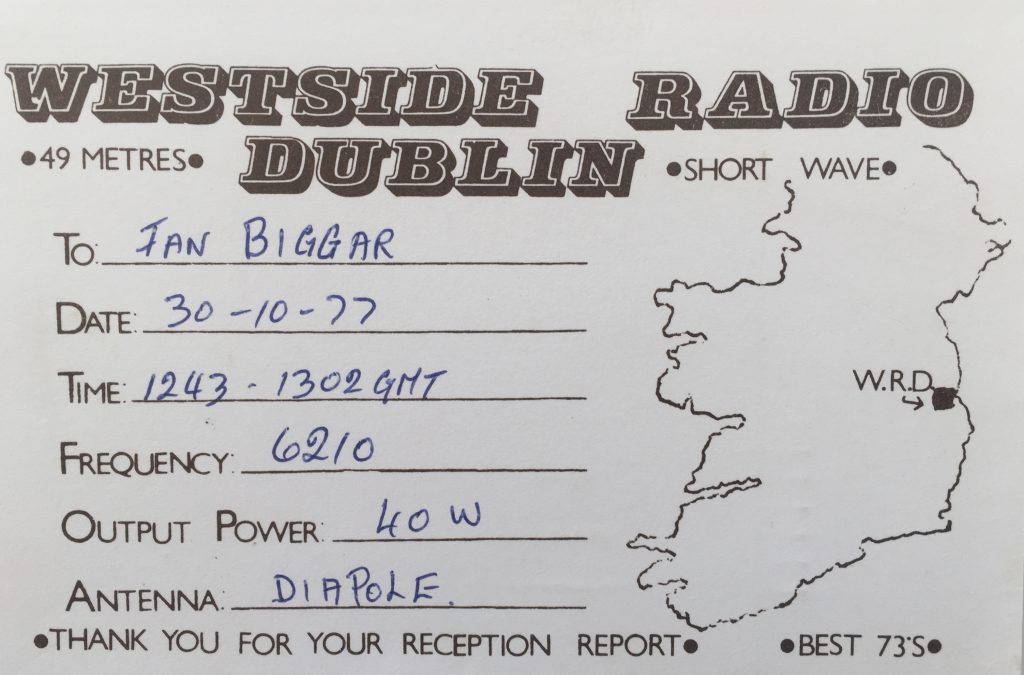 WESTSIDE RADIO
DUBLIN
•49 METRES•
•SHORT WAVE•
TO: IAN BIGGAR
DATE: 30-10-77
TIME: 1243 - 1302 GMT
FREQUENCY: 6210
OUTPUT POWER: 40 W
ANTENNA: DIAPOLE.
W.R.D.
•THANK YOU FOR YOUR RECEPTION REPORT•
•BEST 73'S•